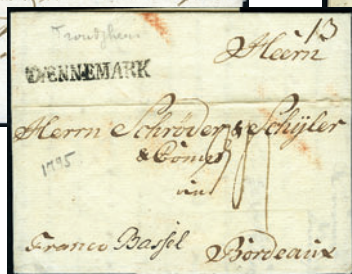 13
Trondghem
DENNEMARK
Herrn
Herrn Schröder & Schÿler
& Comp
in
1795
Franco Bassel
Bordeaux